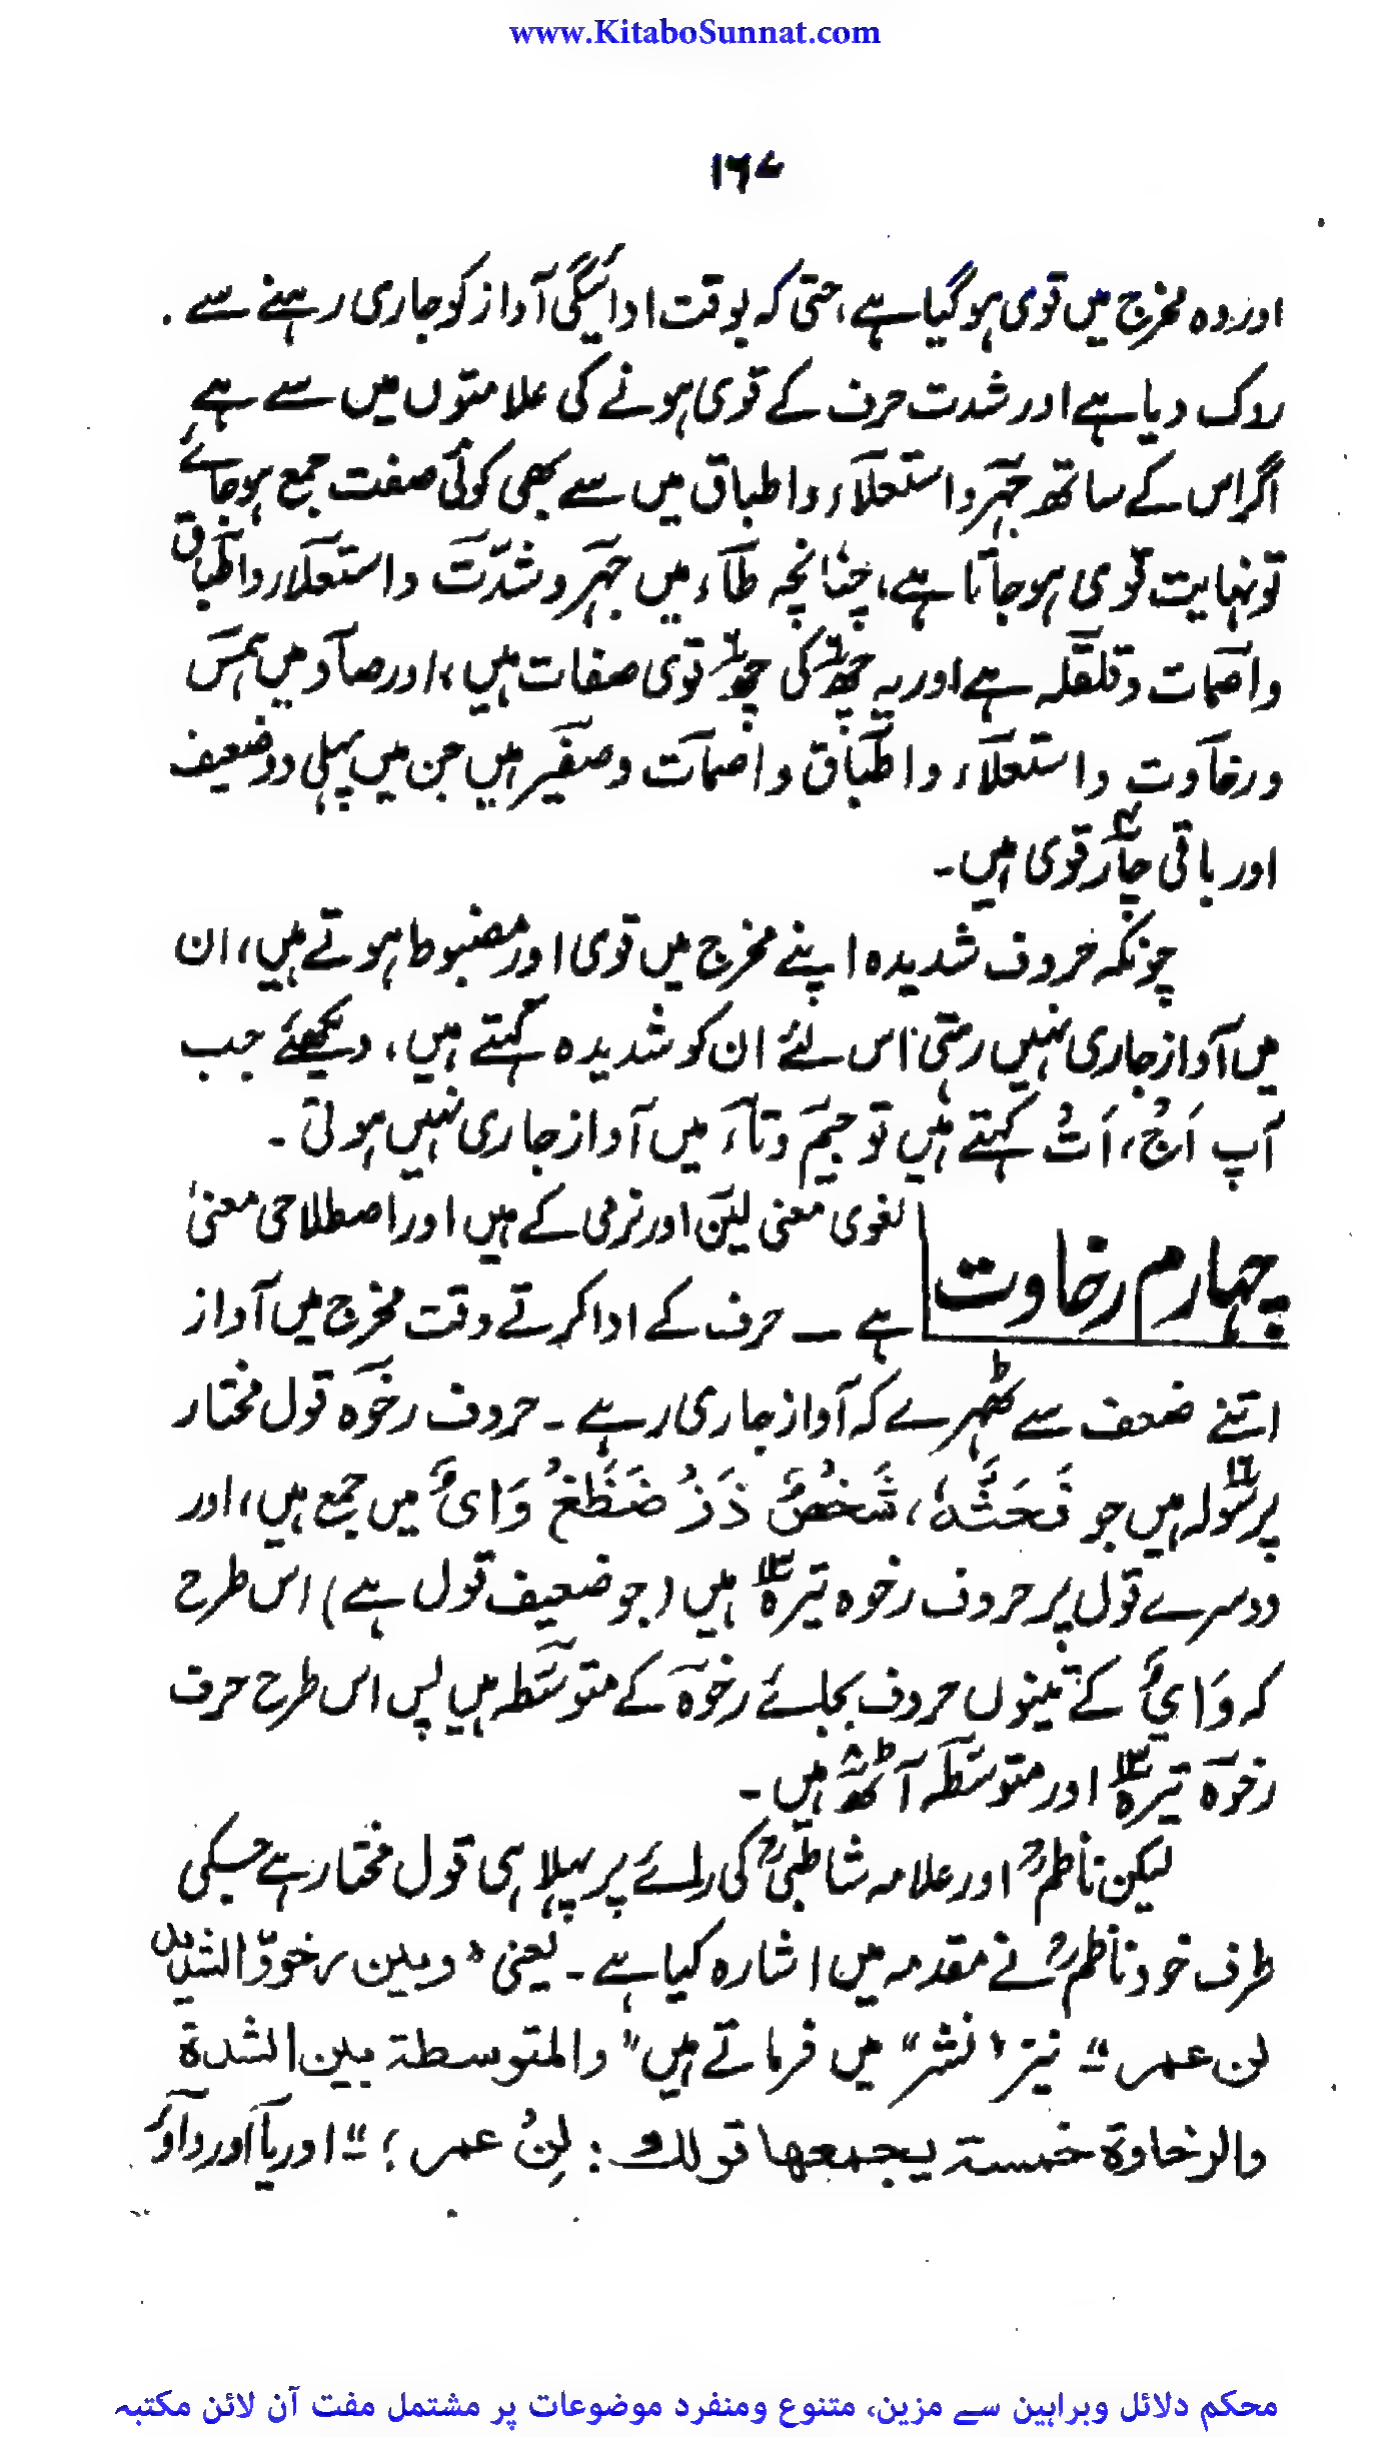 www.KitaboSunnat.com
۱۶۷
اور وہ مخرج میں قوی ہوگیا ہے، حتی کہ بوقت ادائیگی آواز کو جاری رہنے سے
روک دیا ہے اور شدت حرف کے قوی ہونے کی علامتوں میں سے ہے
اگر اس کے ساتھ جہر و استعلاء و اطباق میں سے بھی کوئی صفت جمع ہوجائے
تو نہایت قوی ہوجاتا ہے، چنانچہ طآء میں جہر و شدّت و استعلاء و اطباق
و اصمات و قلقلہ ہے اور یہ چھ۶ کی چھ۶ قوی صفات ہیں، اور صآد میں ہمس
و رخاوت و استعلآء و اطباق و اصمات و صفیر ہیں جن میں پہلی دو ضعیف
اور باقی چار۴ قوی ہیں۔
چونکہ حروف شدیدہ اپنے مخرج میں قوی اور مضبوط ہوتے ہیں، ان
میں آواز جاری نہیں رہتی اس لئے ان کو شدیدہ کہتے ہیں، دیکھئے جب
آپ اَجْ، اَتْ کہتے ہیں تو جیم و تآء میں آواز جاری نہیں ہوتی۔
چہارم رخاوت
لغوی معنی لین اور نرمی کے ہیں اور اصطلاحی معنیٰ
ہے ـــ حرف کے ادا کرتے وقت مخرج میں آواز
اتنے ضعف سے ٹھہرے کہ آواز جاری رہے۔ حروف رخوہ قول مختار
پر سولہ۱۶ ہیں جو فَحَثَّہٗ، شَخْصٌ ذَزْ ضَظَغْ وَایْ میں جمع ہیں، اور
دوسرے قول پر حروف رخوہ تیرہ۱۳ ہیں (جو ضعیف قول ہے) اس طرح
کہ وَایْ کے تینوں حروف بجائے رخوہ کے متوسّطہ ہیں پس اس طرح حرف
رخوہ تیرہ۱۳ اور متوسّطہ آٹھ۸ ہیں۔
لیکن ناظمؒ اور علامہ شاطبیؒ کی رائے پر پہلا ہی قول مختار ہے جسکی
طرف خود ناظمؒ نے مقدمہ میں اشارہ کیا ہے۔ یعنی "وبین رخوٍ والشدید
لن عمر" نیز "نشر" میں فرماتے ہیں "والمتوسطة بین الشدة
والرخاوة خمسة یجمعها قولك: لِنْ عمر؛" اور یآ اور وآؤ
محکم دلائل وبراہین سے مزین، متنوع ومنفرد موضوعات پر مشتمل مفت آن لائن مکتبہ